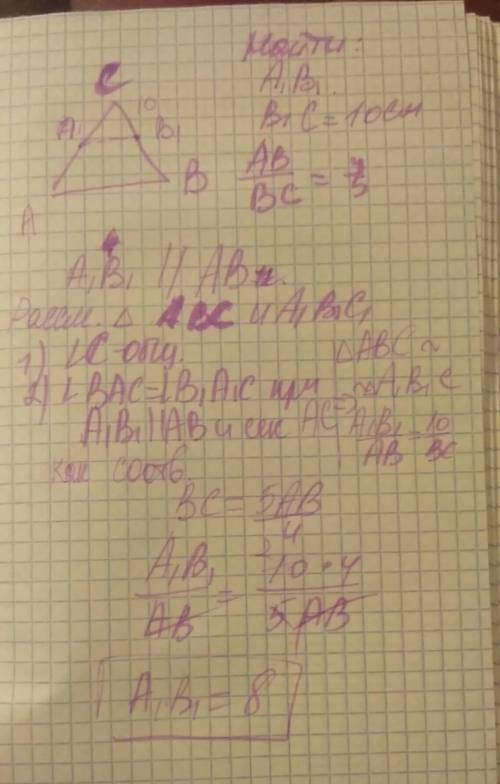 Найти:
A₁B₁.
B₁C = 10см
AB/BC = 4/5
C
10
A₁ B₁
B
A
A₁B₁ || AB
Рассм. △ ABC и A₁B₁C₁
1) ∠C-общ.
2) ∠BAC=∠B₁A₁C при
A₁B₁||AB и сек AC =>
как соотв.
△ABC ~
~ A₁B₁C
A₁B₁/AB = 10/BC
BC = 5AB/4
A₁B₁/AB = 10·4/5AB
A₁B₁ = 8